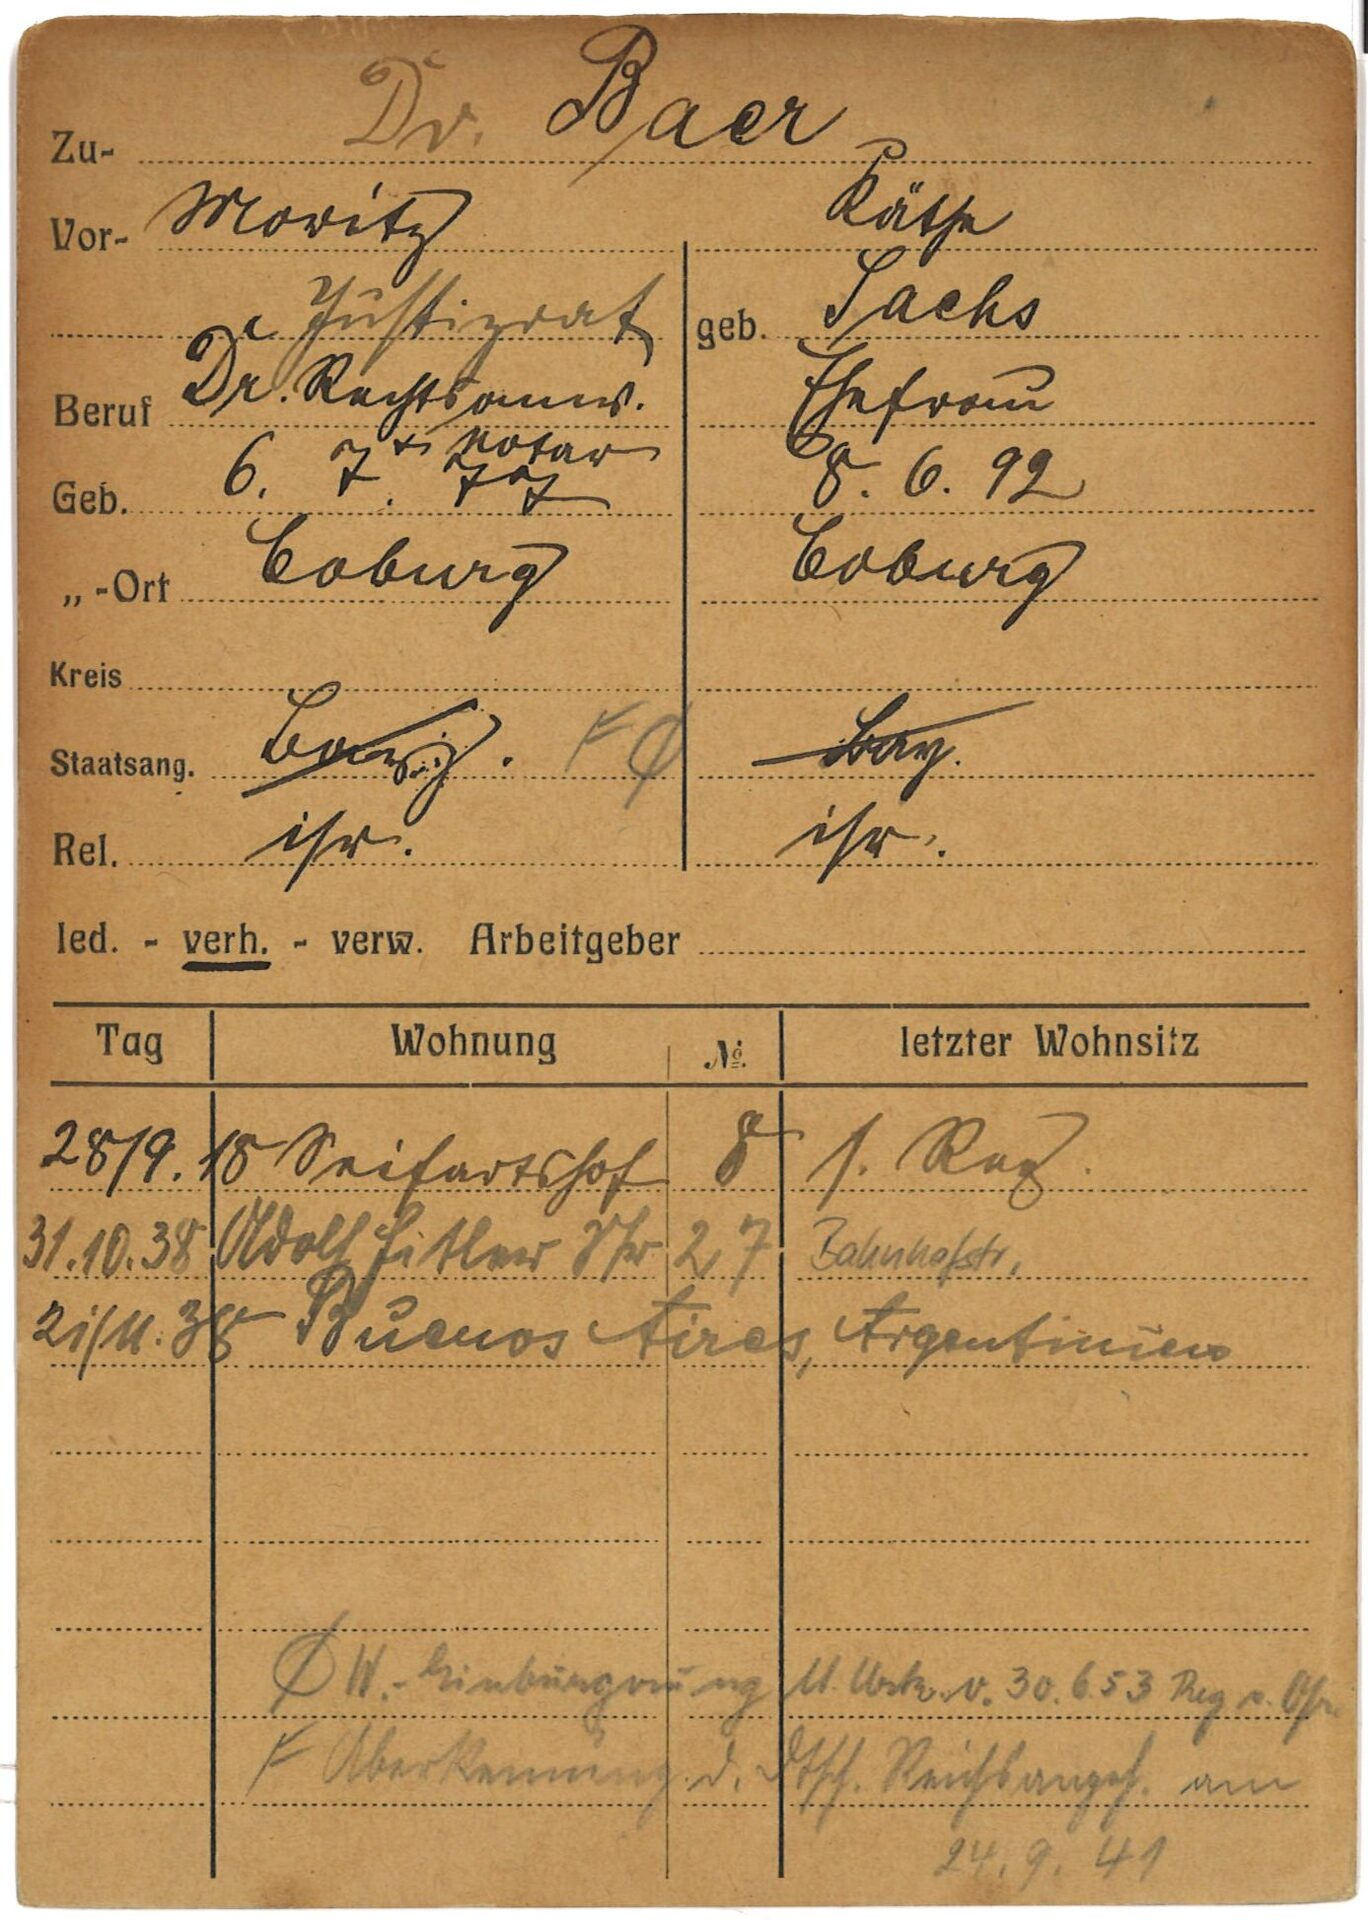 Dr. Baer
Zu-
Vor- Moritz Käthe
Justizrat geb. Sachs
Beruf Dr. Rechtsanw. Ehefrau
+ Notar
Geb. 6. 7. 77 8. 6. 92
„-Ort Coburg Coburg
Kreis
Staatsang. Bay.
Rel. isr. isr.
led. - verh. - verw. Arbeitgeber
Tag Wohnung No. letzter Wohnsitz
28/9. 18 Seifartshof 8 s. Reg.
31.10.38 Adolf Hitler Str 27 Bahnhofstr.
38 Buenos Aires, Argentinien
W.-Einbürgerung Urk. v. 30.6.53 Reg v.
Aberkennung d. Dtsch. Reichsangeh. am
24. 9. 41